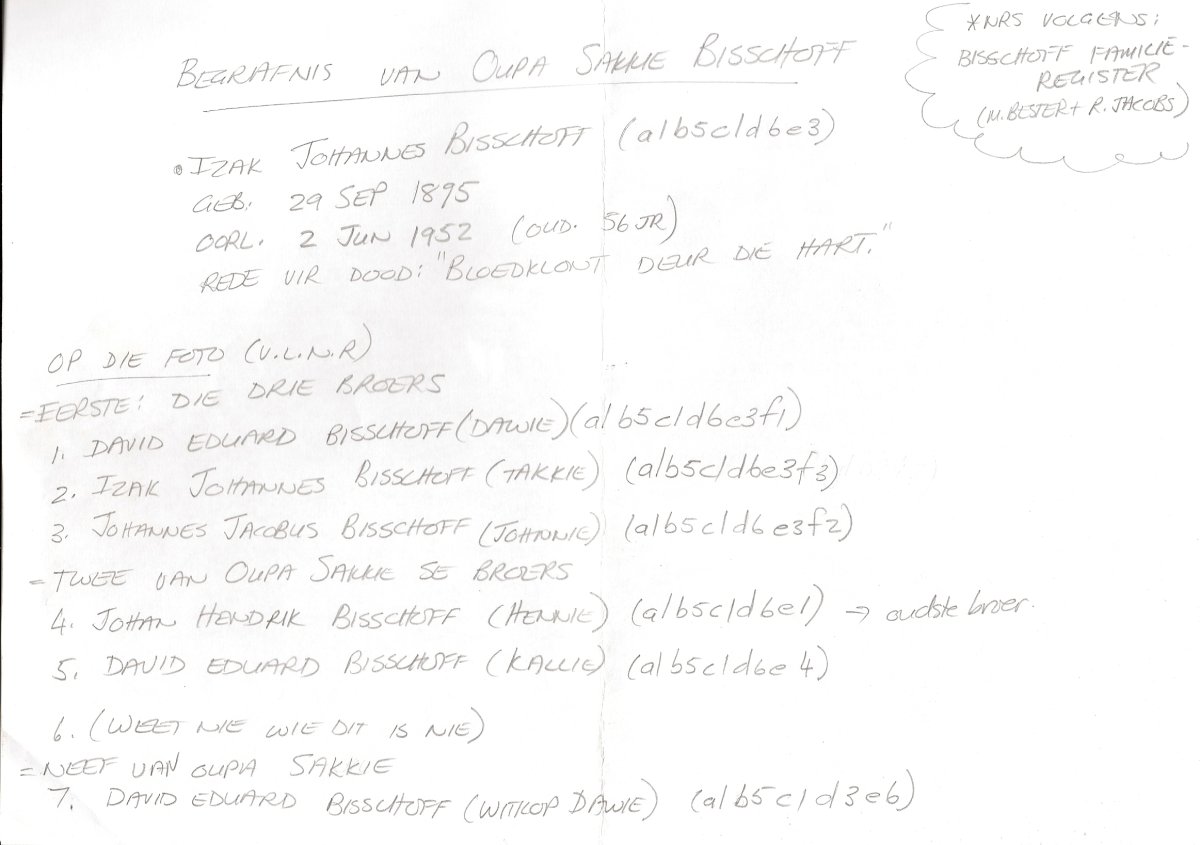 BEGRAFNIS VAN OUPA SAKKIE BISSCHOFF
*NRS VOLGENS:
BISSCHOFF FAMILIE-
REGISTER
(M. BESTER + R. JACOBS)
• IZAK JOHANNES BISSCHOFF (a1b5c1d6e3)
GEB. 29 SEP 1895
OORL. 2 JUN 1952 (OUD. 56 JR)
REDE VIR DOOD: "BLOEDKLONT DEUR DIE HART."
OP DIE FOTO (V.L.N.R)
=EERSTE: DIE DRIE BROERS
1. DAVID EDUARD BISSCHOFF (DAWIE) (a1b5c1d6e3f1)
2. IZAK JOHANNES BISSCHOFF (TAKKIE) (a1b5c1d6e3f3)
3. JOHANNES JACOBUS BISSCHOFF (JOHNNIE) (a1b5c1d6e3f2)
= TWEE VAN OUPA SAKKIE SE BROERS
4. JOHAN HENDRIK BISSCHOFF (HENNIE) (a1b5c1d6e1) → oudste broer.
5. DAVID EDUARD BISSCHOFF (KALLIE) (a1b5c1d6e4)
6. (WEET NIE WIE DIT IS NIE)
= NEEF VAN OUPA SAKKIE
7. DAVID EDUARD BISSCHOFF (WITKOP DAWIE) (a1b5c1d3e6)